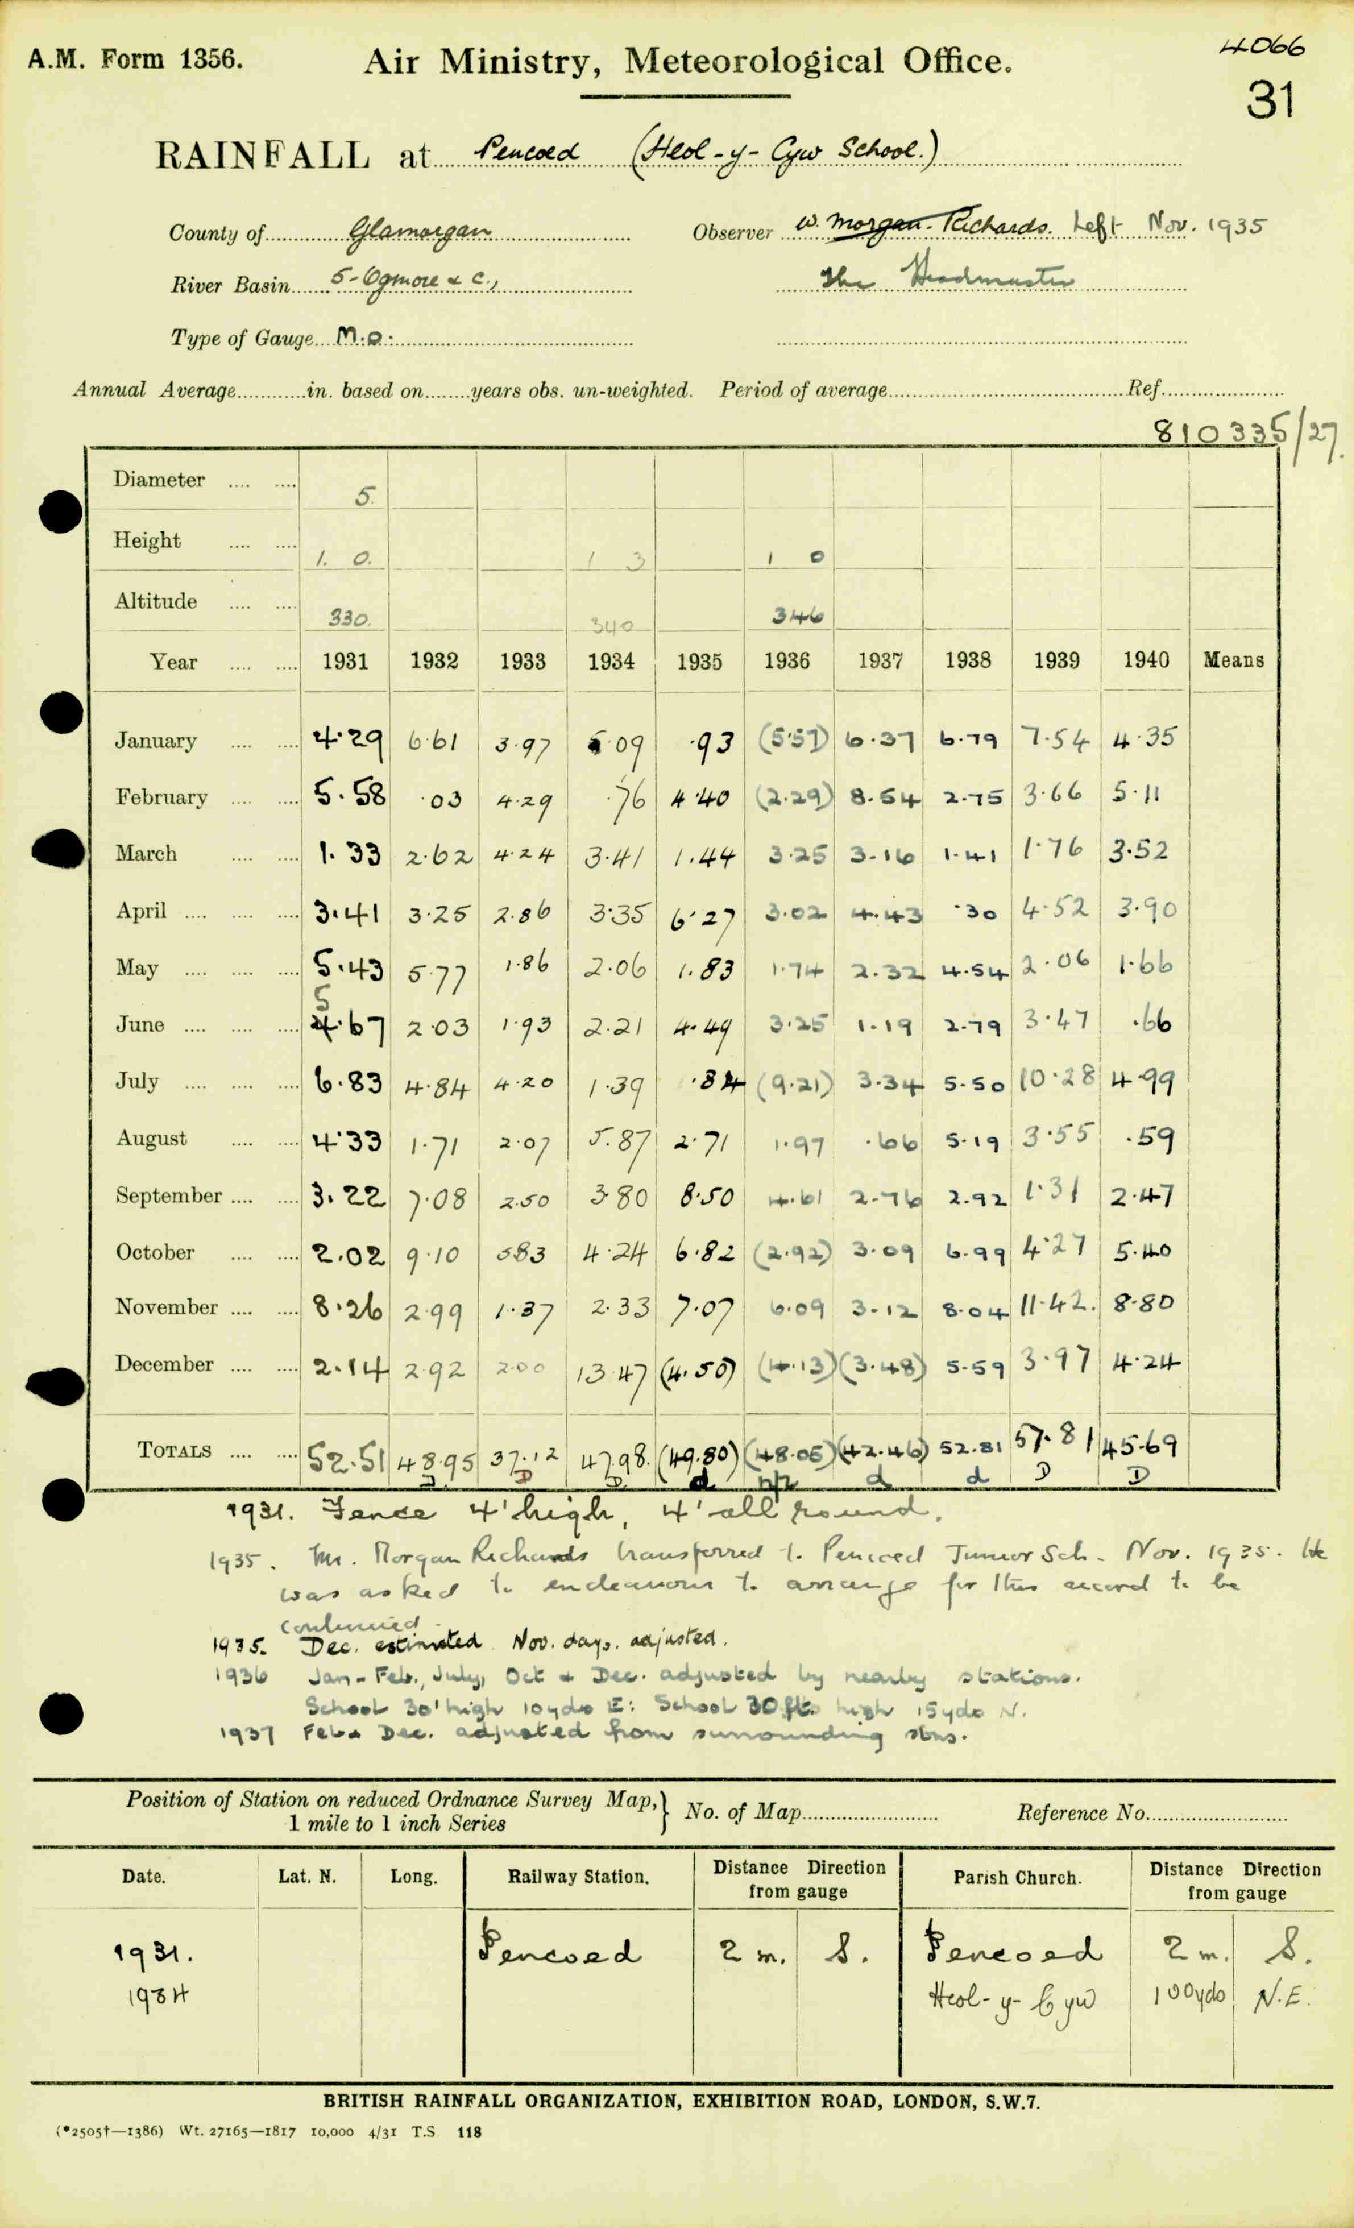 A.M. Form 1356.
Air Ministry, Meteorological Office.
4066
31
RAINFALL at Pencoed (Heol-y-Cyw School.)
County of Glamorgan Observer W. Morgan-Richards. Left Nov. 1935
River Basin 5-Ogmore & c., The Headmaster
Type of Gauge M.O.
Annual Average in. based on years obs. un-weighted. Period of average Ref.
810335/27.
Diameter 5.
Height 1. 0. 1 3 1 0
Altitude 330. 340 346
Year 1931 1932 1933 1934 1935 1936 1937 1938 1939 1940 Means
January 4.29 6.61 3.97 5.09 .93 (5.57) 6.37 6.79 7.54 4.35
February 5.58 .03 4.29 .76 4.40 (2.29) 8.54 2.75 3.66 5.11
March 1.33 2.62 4.24 3.41 1.44 3.25 3.16 1.41 1.76 3.52
April 3.41 3.25 2.86 3.35 6.27 3.02 4.43 .30 4.52 3.90
May 5.43 5.77 1.86 2.06 1.83 1.74 2.32 4.54 2.06 1.66
5
June 4.67 2.03 1.93 2.21 4.49 3.25 1.19 2.79 3.47 .66
July 6.83 4.84 4.20 1.39 .84 (9.21) 3.34 5.50 10.28 4.99
August 4.33 1.71 2.07 5.87 2.71 1.97 .66 5.19 3.55 .59
September 3.22 7.08 2.50 3.80 8.50 4.61 2.76 2.92 1.31 2.47
October 2.02 9.10 5.83 4.24 6.82 (2.92) 3.09 6.99 4.27 5.40
November 8.26 2.99 1.37 2.33 7.07 6.09 3.12 8.04 11.42. 8.80
December 2.14 2.92 2.00 13.47 (4.50) (4.13) (3.48) 5.59 3.97 4.24
TOTALS 52.51 48.95 37.12 47.98. (49.80) (48.05) (42.46) 52.81 57.81 45.69
D D D d d d D D
1931. Fence 4' high, 4' all round.
1935. Mr. Morgan Richards transferred to Pencoed Junior Sch. Nov. 1935. He
was asked to endeavour to arrange for this record to be
continued.
1935. Dec. estimated. Nov. days. adjusted.
1936 Jan-Feb., July, Oct & Dec. adjusted by nearby stations.
School 30' high 10 yds E: School 30 ft. high 15 yds N.
1937 Feb & Dec. adjusted from surrounding stns.
Position of Station on reduced Ordnance Survey Map,} No. of Map Reference No.
1 mile to 1 inch Series
Date. Lat. N. Long. Railway Station. Distance Direction from gauge Parish Church. Distance Direction from gauge
1931. Pencoed 2 m. S. Pencoed 2 m. S.
1934 Heol-y-Cyw 100 yds N.E.
BRITISH RAINFALL ORGANIZATION, EXHIBITION ROAD, LONDON, S.W.7.
(*2505†—1386) Wt. 27165—1817 10,000 4/31 T.S 118